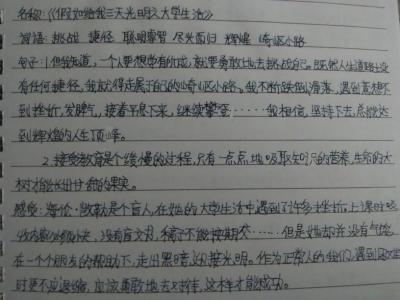 名称:《假如给我三天光明之大学生活》
词语:挑战 捷径 聪明睿智 尽兴而归 辉煌 崎岖小路
句子:1.但我知道,一个人要想学有所成,就要勇敢地去挑战自己。既然人生道路上没
有任何捷径,我就得走属于自己的崎岖小路。我不断跌倒滑落,遇到意想不
到挫折,发脾气,接着平息下来,继续攀登……我相信,坚持下去,总能达
到辉煌的人生顶峰。
2.接受教育是个缓慢的过程,只有一点点地吸取知识的营养,生命的大
树才能长出甘甜的果实。
感受:海伦·凯勒是个盲人,在她的大学生活中遇到了许多挫折:上课时吸
收内容必须快,没有盲文书,稿子不能按期交……但是她却并没有气馁
在一个个朋友的帮助下,走出黑暗,迎接光明。作为正常人的我们,遇到困难
时更不应退缩,应该勇敢地去对待,这样才能成功。